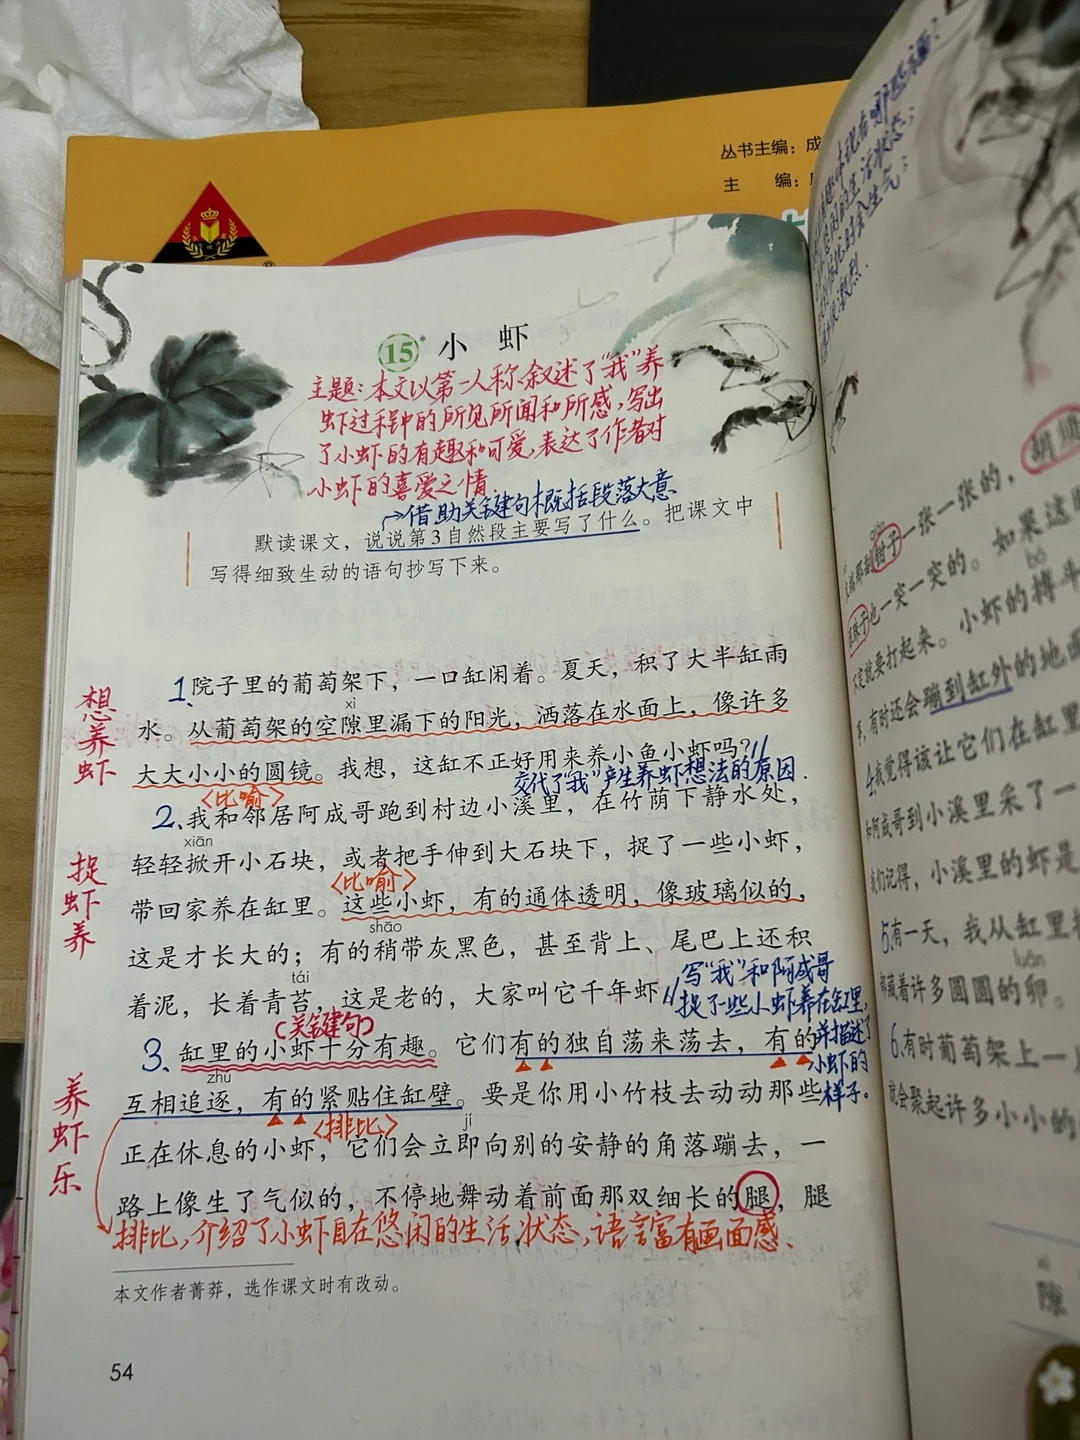 丛书主编：成
主　编：
15* 小 虾
主题：本文以第一人称，叙述了“我”养
虾过程中的所见所闻和所感，写出
了小虾的有趣和可爱，表达了作者对
小虾的喜爱之情.
→借助关键句概括段落大意
默读课文，说说第3自然段主要写了什么。把课文中
写得细致生动的语句抄写下来。
想养虾
1、院子里的葡萄架下，一口缸闲着。夏天，积了大半缸雨
xì
水。从葡萄架的空隙里漏下的阳光，洒落在水面上，像许多
大大小小的圆镜。我想，这缸不正好用来养小鱼小虾吗？//
交代了“我”产生养虾想法的原因.
〈比喻〉
2、我和邻居阿成哥跑到村边小溪里，在竹荫下静水处，
xiān
捉虾养
轻轻掀开小石块，或者把手伸到大石块下，捉了一些小虾，
〈比喻〉
带回家养在缸里。这些小虾，有的通体透明，像玻璃似的，
shāo
这是才长大的；有的稍带灰黑色，甚至背上、尾巴上还积
tái
着泥，长着青苔，这是老的，大家叫它千年虾//
写“我”和阿成哥
捉了一些小虾养在缸里，
并描述了
小虾的
样子。
(关键句)
3、缸里的小虾十分有趣。它们有的独自荡来荡去，有的
zhú
养虾乐
互相追逐，有的紧贴住缸壁。要是你用小竹枝去动动那些
〈排比〉
jí
正在休息的小虾，它们会立即向别的安静的角落蹦去，一
路上像生了气似的，不停地舞动着前面那双细长的腿，腿
排比，介绍了小虾自在悠闲的生活状态，语言富有画面感、
本文作者菁莽，选作课文时有改动。
54
钳子一张一张的，胡须
也一突一突的。如果这
bó
就要打起来。小虾的搏斗
有时还会蹦到缸外的地
4、我觉得该让它们在缸里
和阿成哥到小溪里采了一
我们记得，小溪里的虾是
5、有一天，我从缸里
luǎn
都藏着许多圆圆的卵。
6、有时葡萄架上一
就会聚起许多小小的
隙